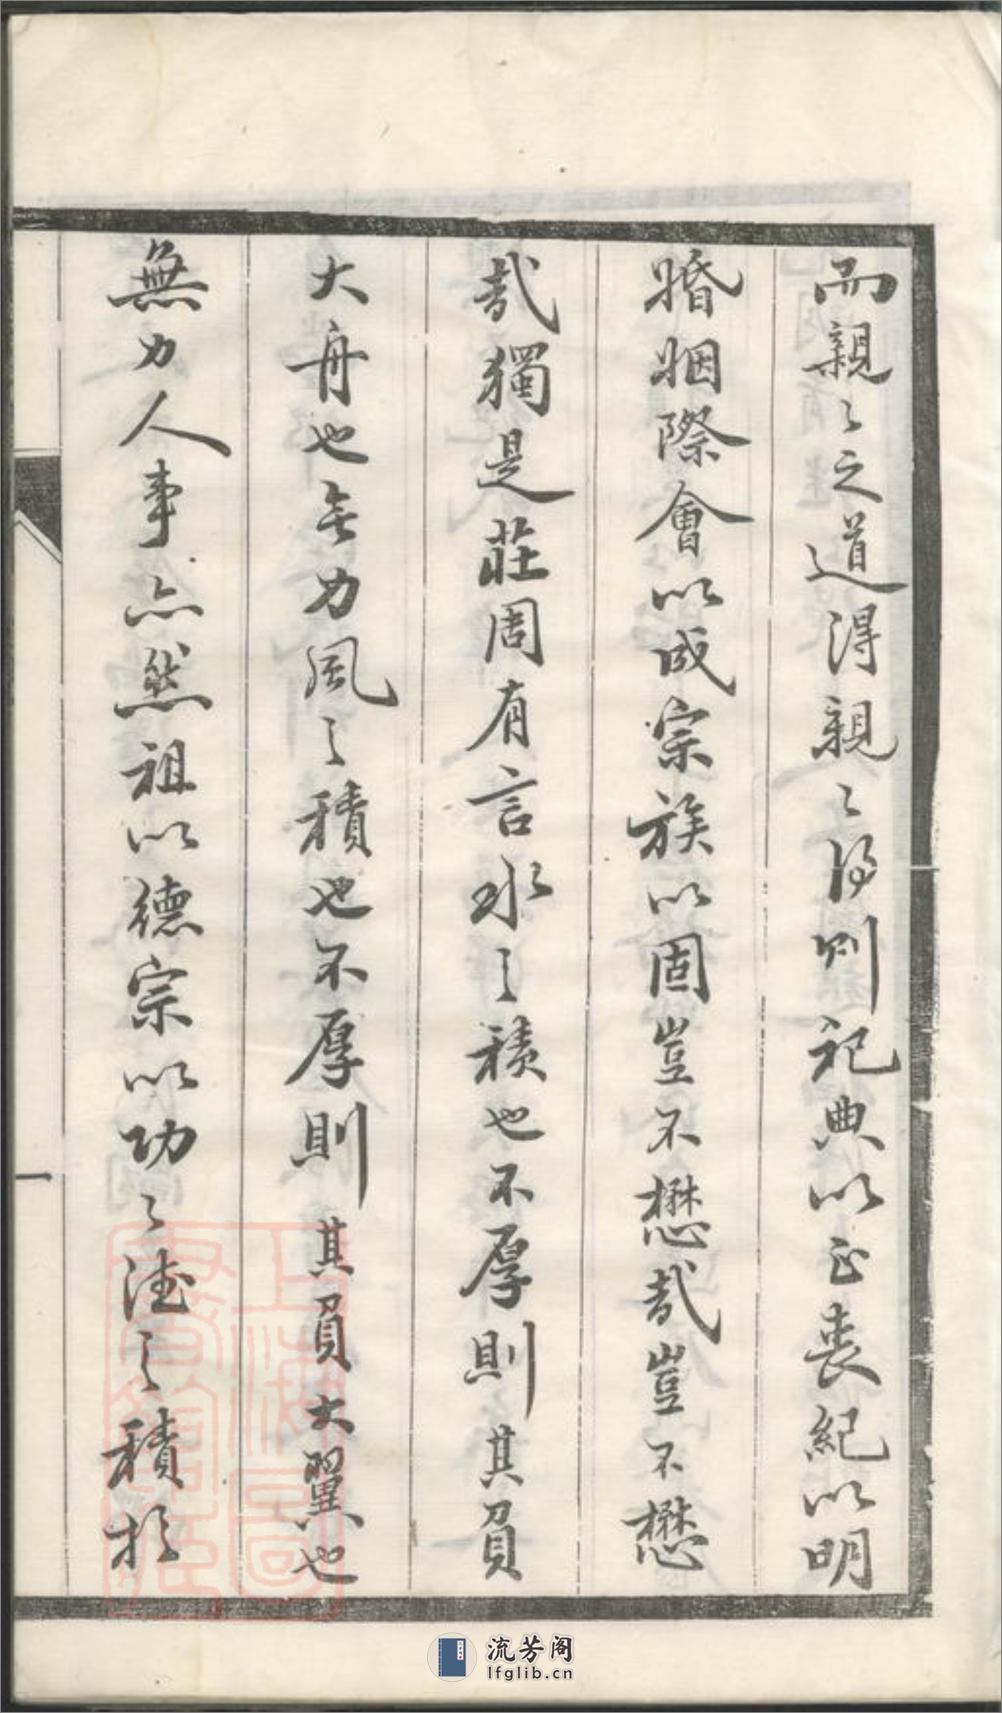 而親〻之道得親〻得則祀典以正喪紀以明
婚姻際會以成宗族以固豈不懋哉豈不懋
哉獨是莊周有言水之積也不厚則其負
大舟也無力風之積也不厚則其負大翼也
無力人事亦然祖以德宗以功〻德之積於
一
上海圖書館藏
流芳阁
lfglib.cn